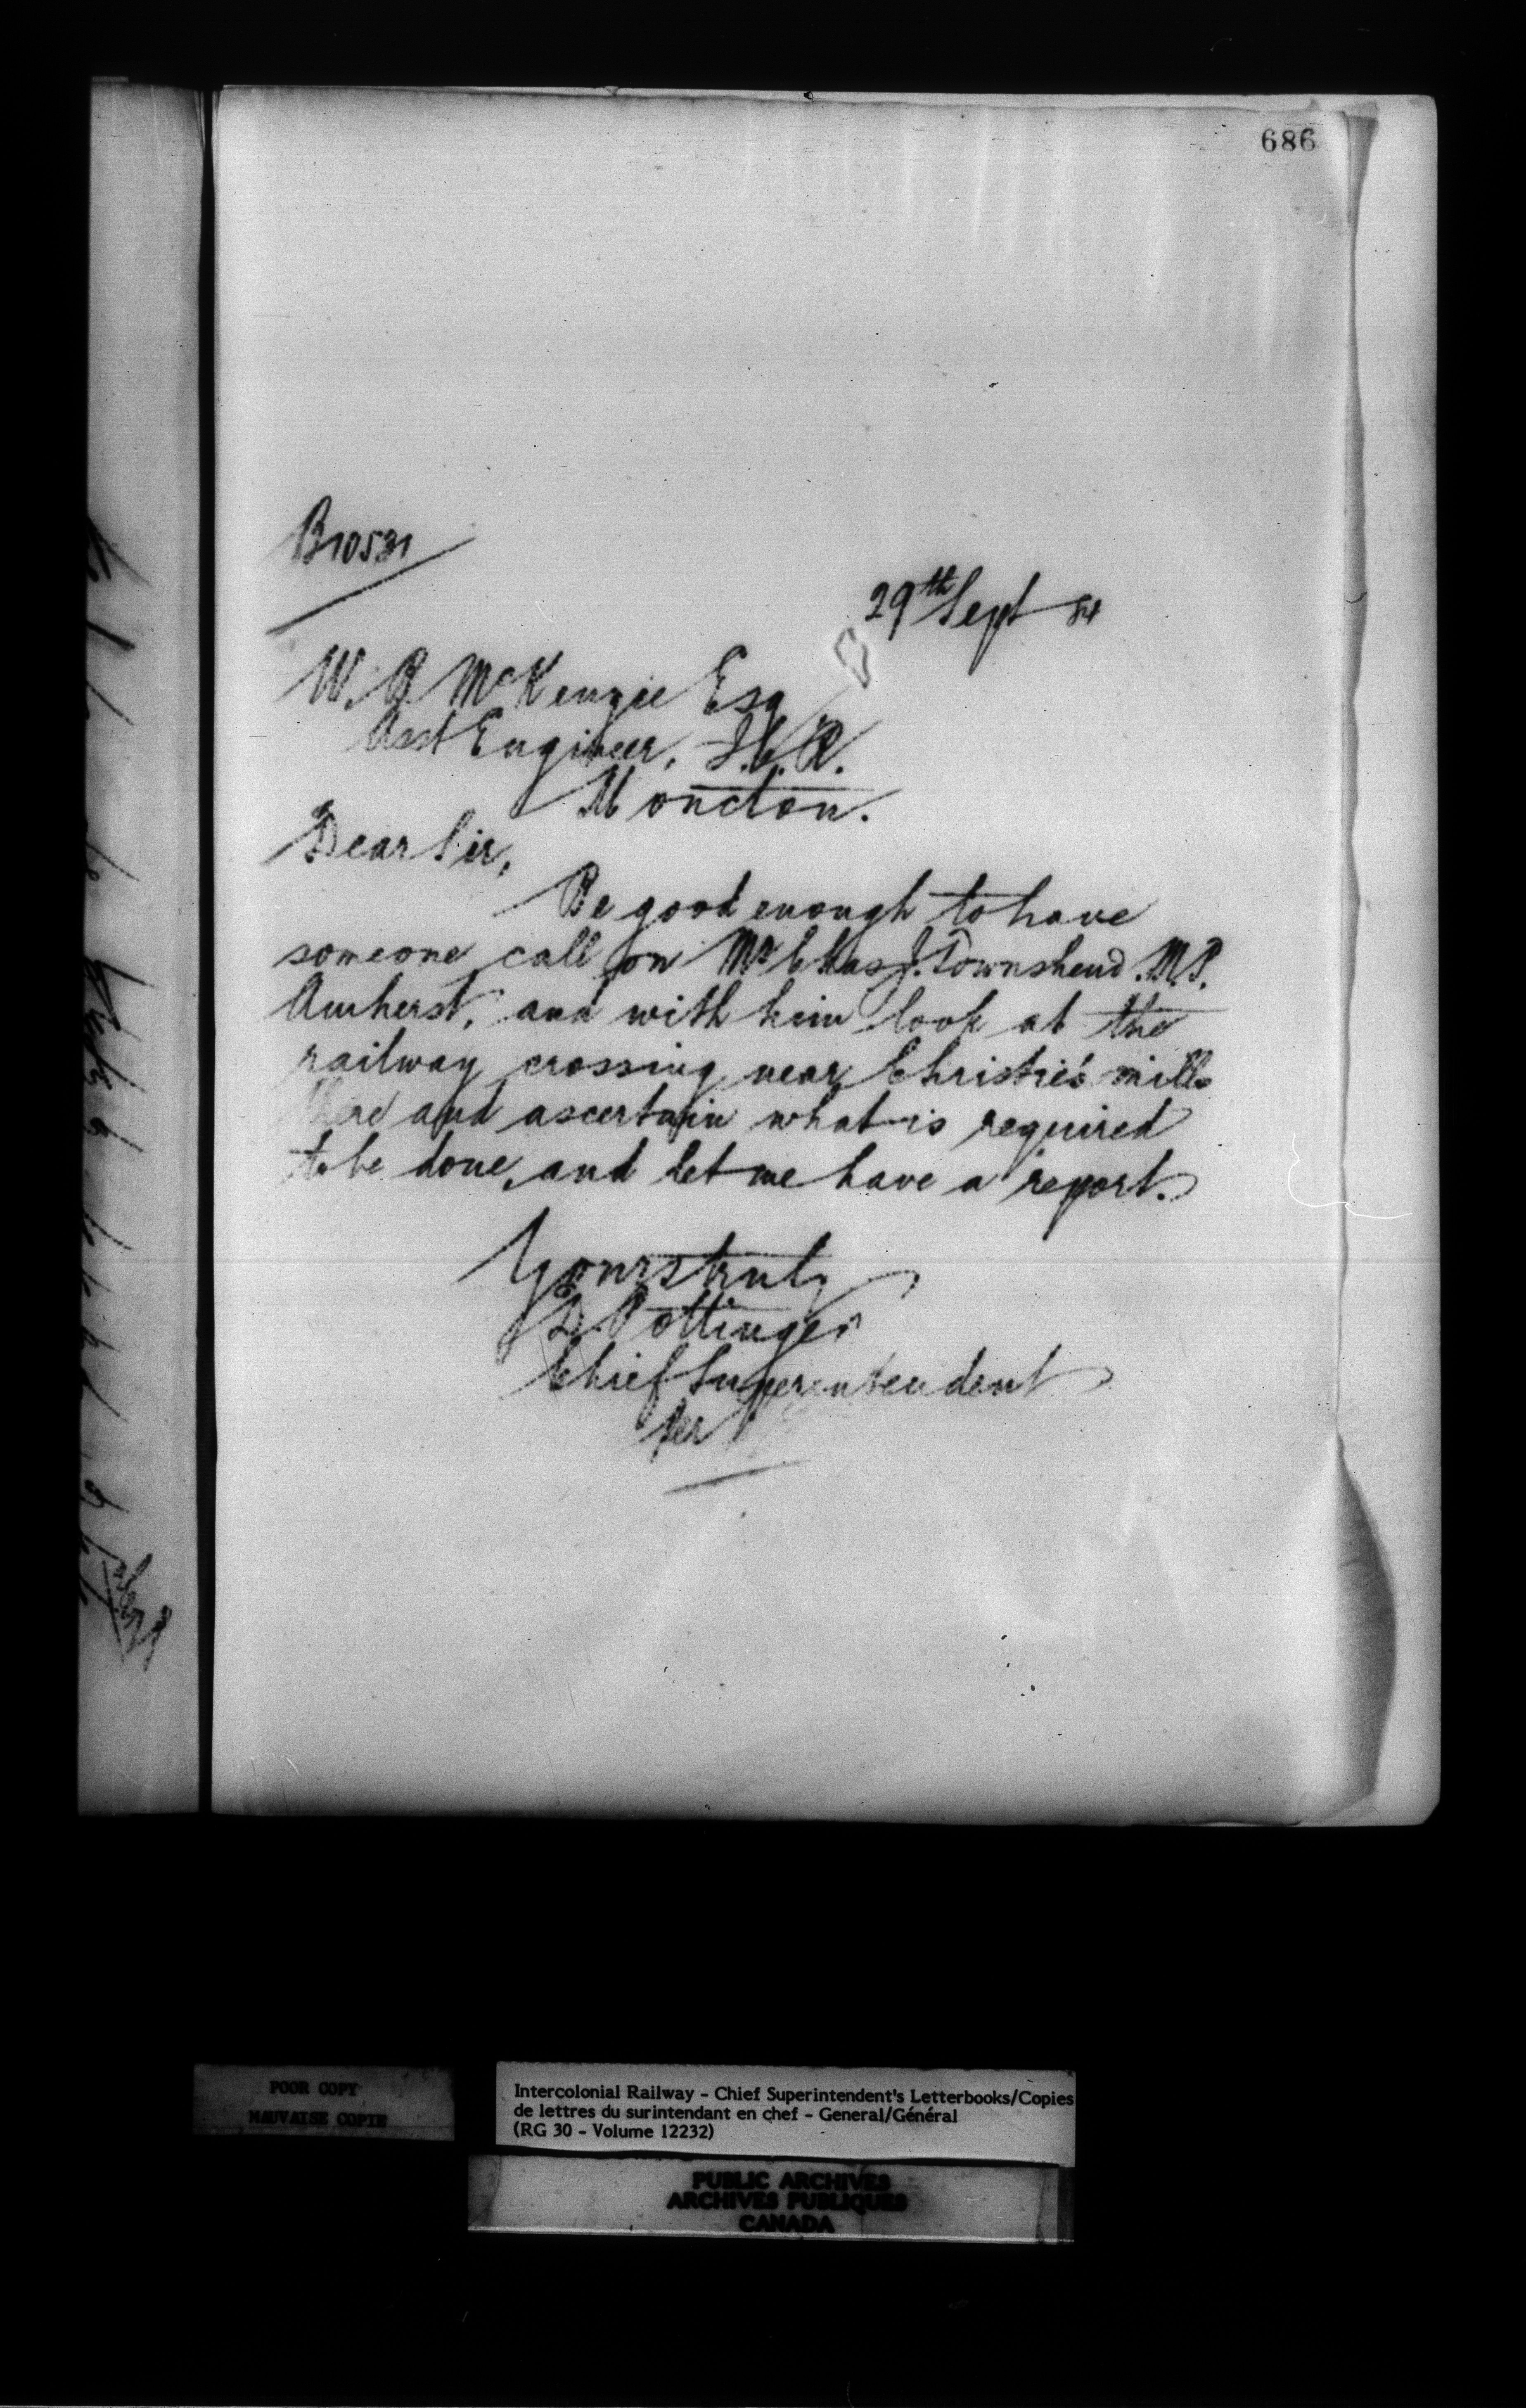 686
B10531
29th Sept 84
W. B McKenzie Esq
Asst Engineer, I.C.R.
Moncton.
Dear Sir,
Be good enough to have
someone call on Mr Chas J. Townshend M.P.
Amherst, and with him look at the
railway crossing near Christie's mills
there and ascertain what is required
to be done, and let me have a report.
Yours truly
D. Pottinger
Chief Superintendent
Per
POOR COPY
MAUVAISE COPIE
Intercolonial Railway - Chief Superintendent's Letterbooks/Copies
de lettres du surintendant en chef - General/Général
(RG 30 - Volume 12232)
PUBLIC ARCHIVES
ARCHIVES PUBLIQUES
CANADA